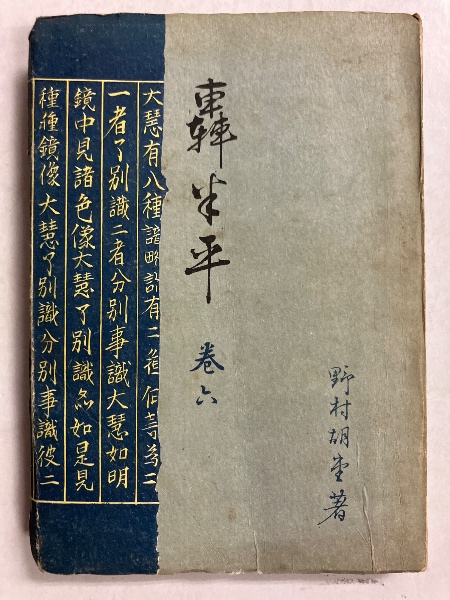 轟半平
卷六
野村胡堂著
大慧有八種識略說有二種何等為二
一者了別識二者分別事識大慧如明
鏡中見諸色像大慧了別識亦如是見
種種鏡像大慧了別識分別事識彼二